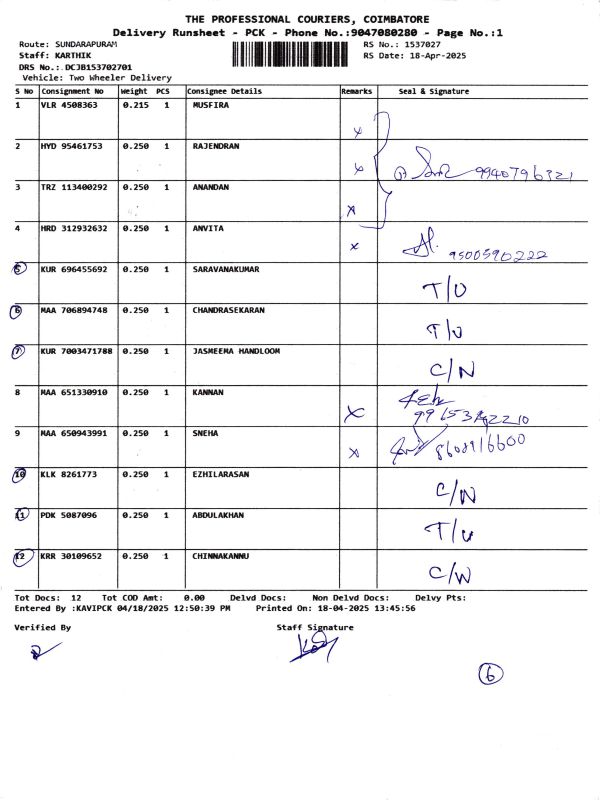 THE PROFESSIONAL COURIERS, COIMBATORE
Delivery Runsheet - PCK - Phone No.:9047080280 - Page No.:1
Route: SUNDARAPURAM RS No.: 1537027
Staff: KARTHIK RS Date: 18-Apr-2025
DRS No.:.DCJB153702701
Vehicle: Two Wheeler Delivery
S No Consignment No Weight PCS Consignee Details Remarks Seal & Signature
1 VLR 4508363 0.215 1 MUSFIRA x
2 HYD 95461753 0.250 1 RAJENDRAN x 9940796321
3 TRZ 113400292 0.250 1 ANANDAN x
4 HRD 312932632 0.250 1 ANVITA x 9500590222
5 KUR 696455692 0.250 1 SARAVANAKUMAR T/U
6 MAA 706894748 0.250 1 CHANDRASEKARAN T/U
7 KUR 7003471788 0.250 1 JASMEEMA HANDLOOM C/N
8 MAA 651330910 0.250 1 KANNAN x
9 MAA 650943991 0.250 1 SNEHA x 8608916600
10 KLK 8261773 0.250 1 EZHILARASAN C/N
11 PDK 5087096 0.250 1 ABDULAKHAN T/U
12 KRR 30109652 0.250 1 CHINNAKANNU C/N
Tot Docs: 12 Tot COD Amt: 0.00 Delvd Docs: Non Delvd Docs: Delvy Pts:
Entered By :KAVIPCK 04/18/2025 12:50:39 PM Printed On: 18-04-2025 13:45:56
Verified By Staff Signature
6